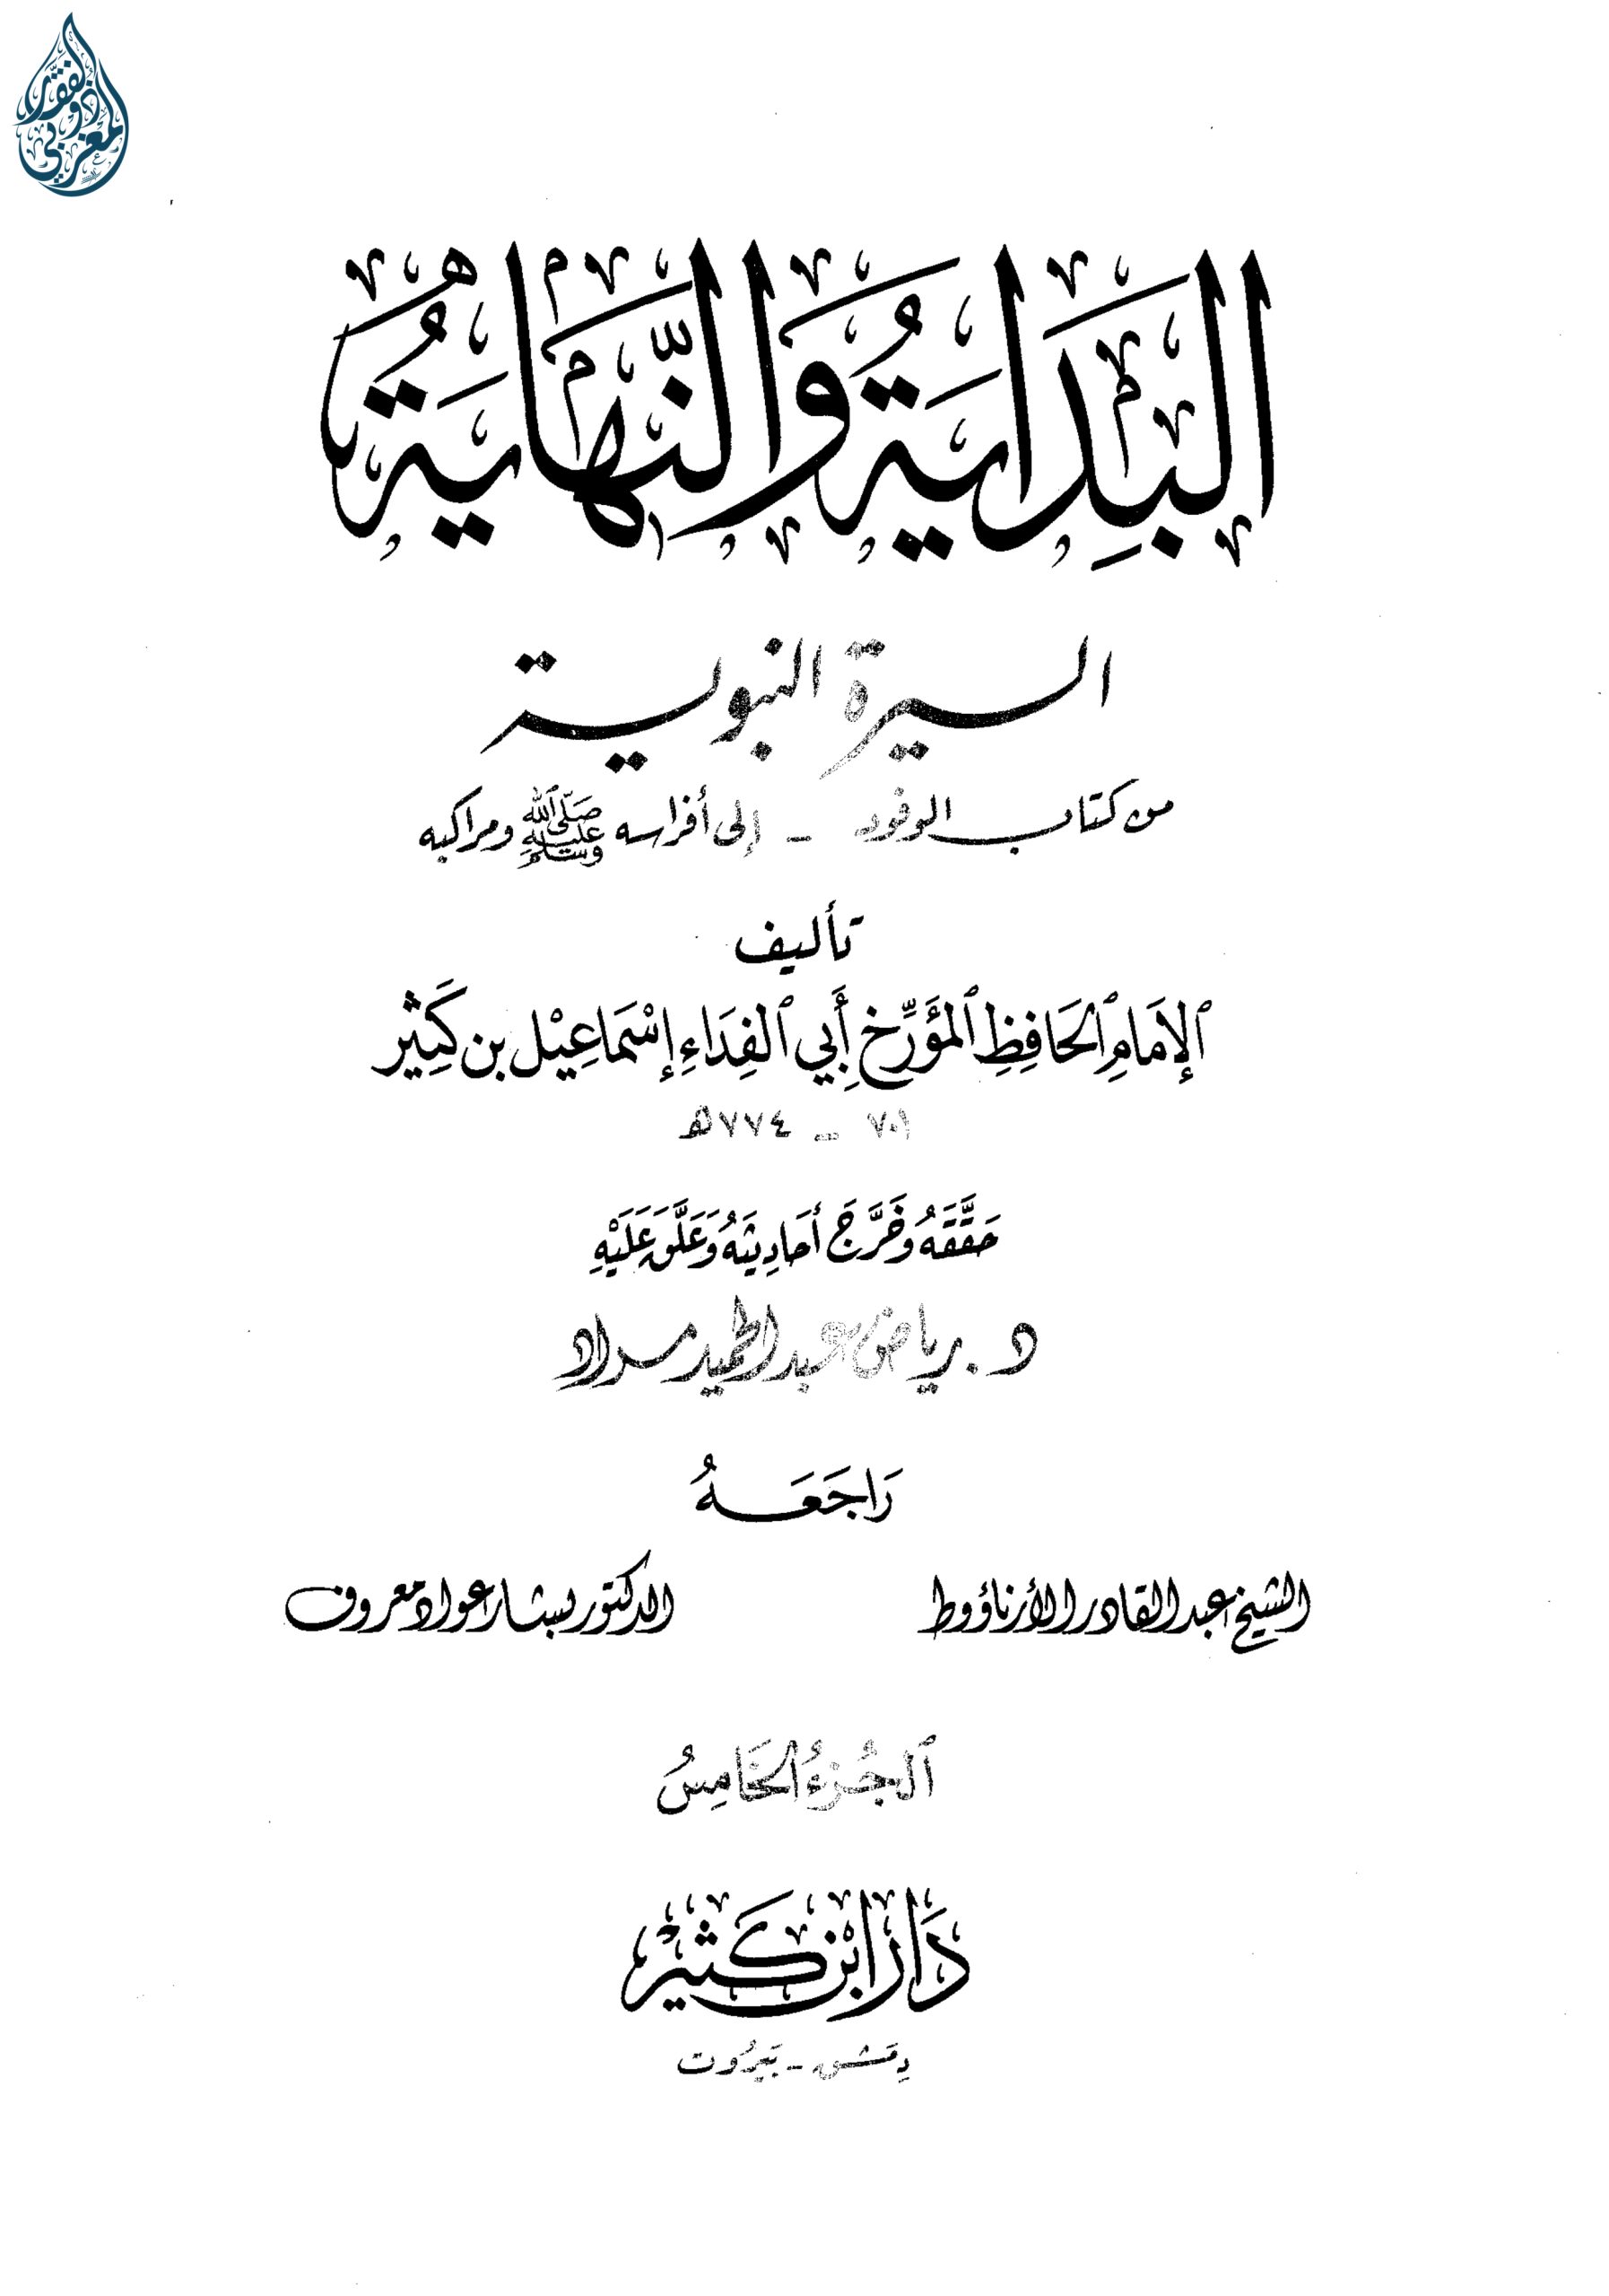 ذو الفقار المغربي
البِدَايَةُ وَالنِّهَايَةُ
السيرة النبوية
من كتاب الوفود - إلى أفراسه ﷺ ومراكبه
تأليف
الإمَامِ الحَافِظِ المؤَرِّخ أَبِي الفِدَاءِ إسْمَاعِيْل بن كَثِير
٧٠١ - ٧٧٤ هـ
حَقَّقَهُ وَخَرَّجَ أحَادِيثَهُ وَعَلَّقَ عَلَيْهِ
د. رياض عبد الحميد مراد
رَاجَعَهُ
الشيخ عبد القادر الأرناؤوط الدكتور بشار عواد معروف
الجُزءُ الخَامِسُ
دَار ابْن كَثِيْر
دِمَشق - بَيرُوت